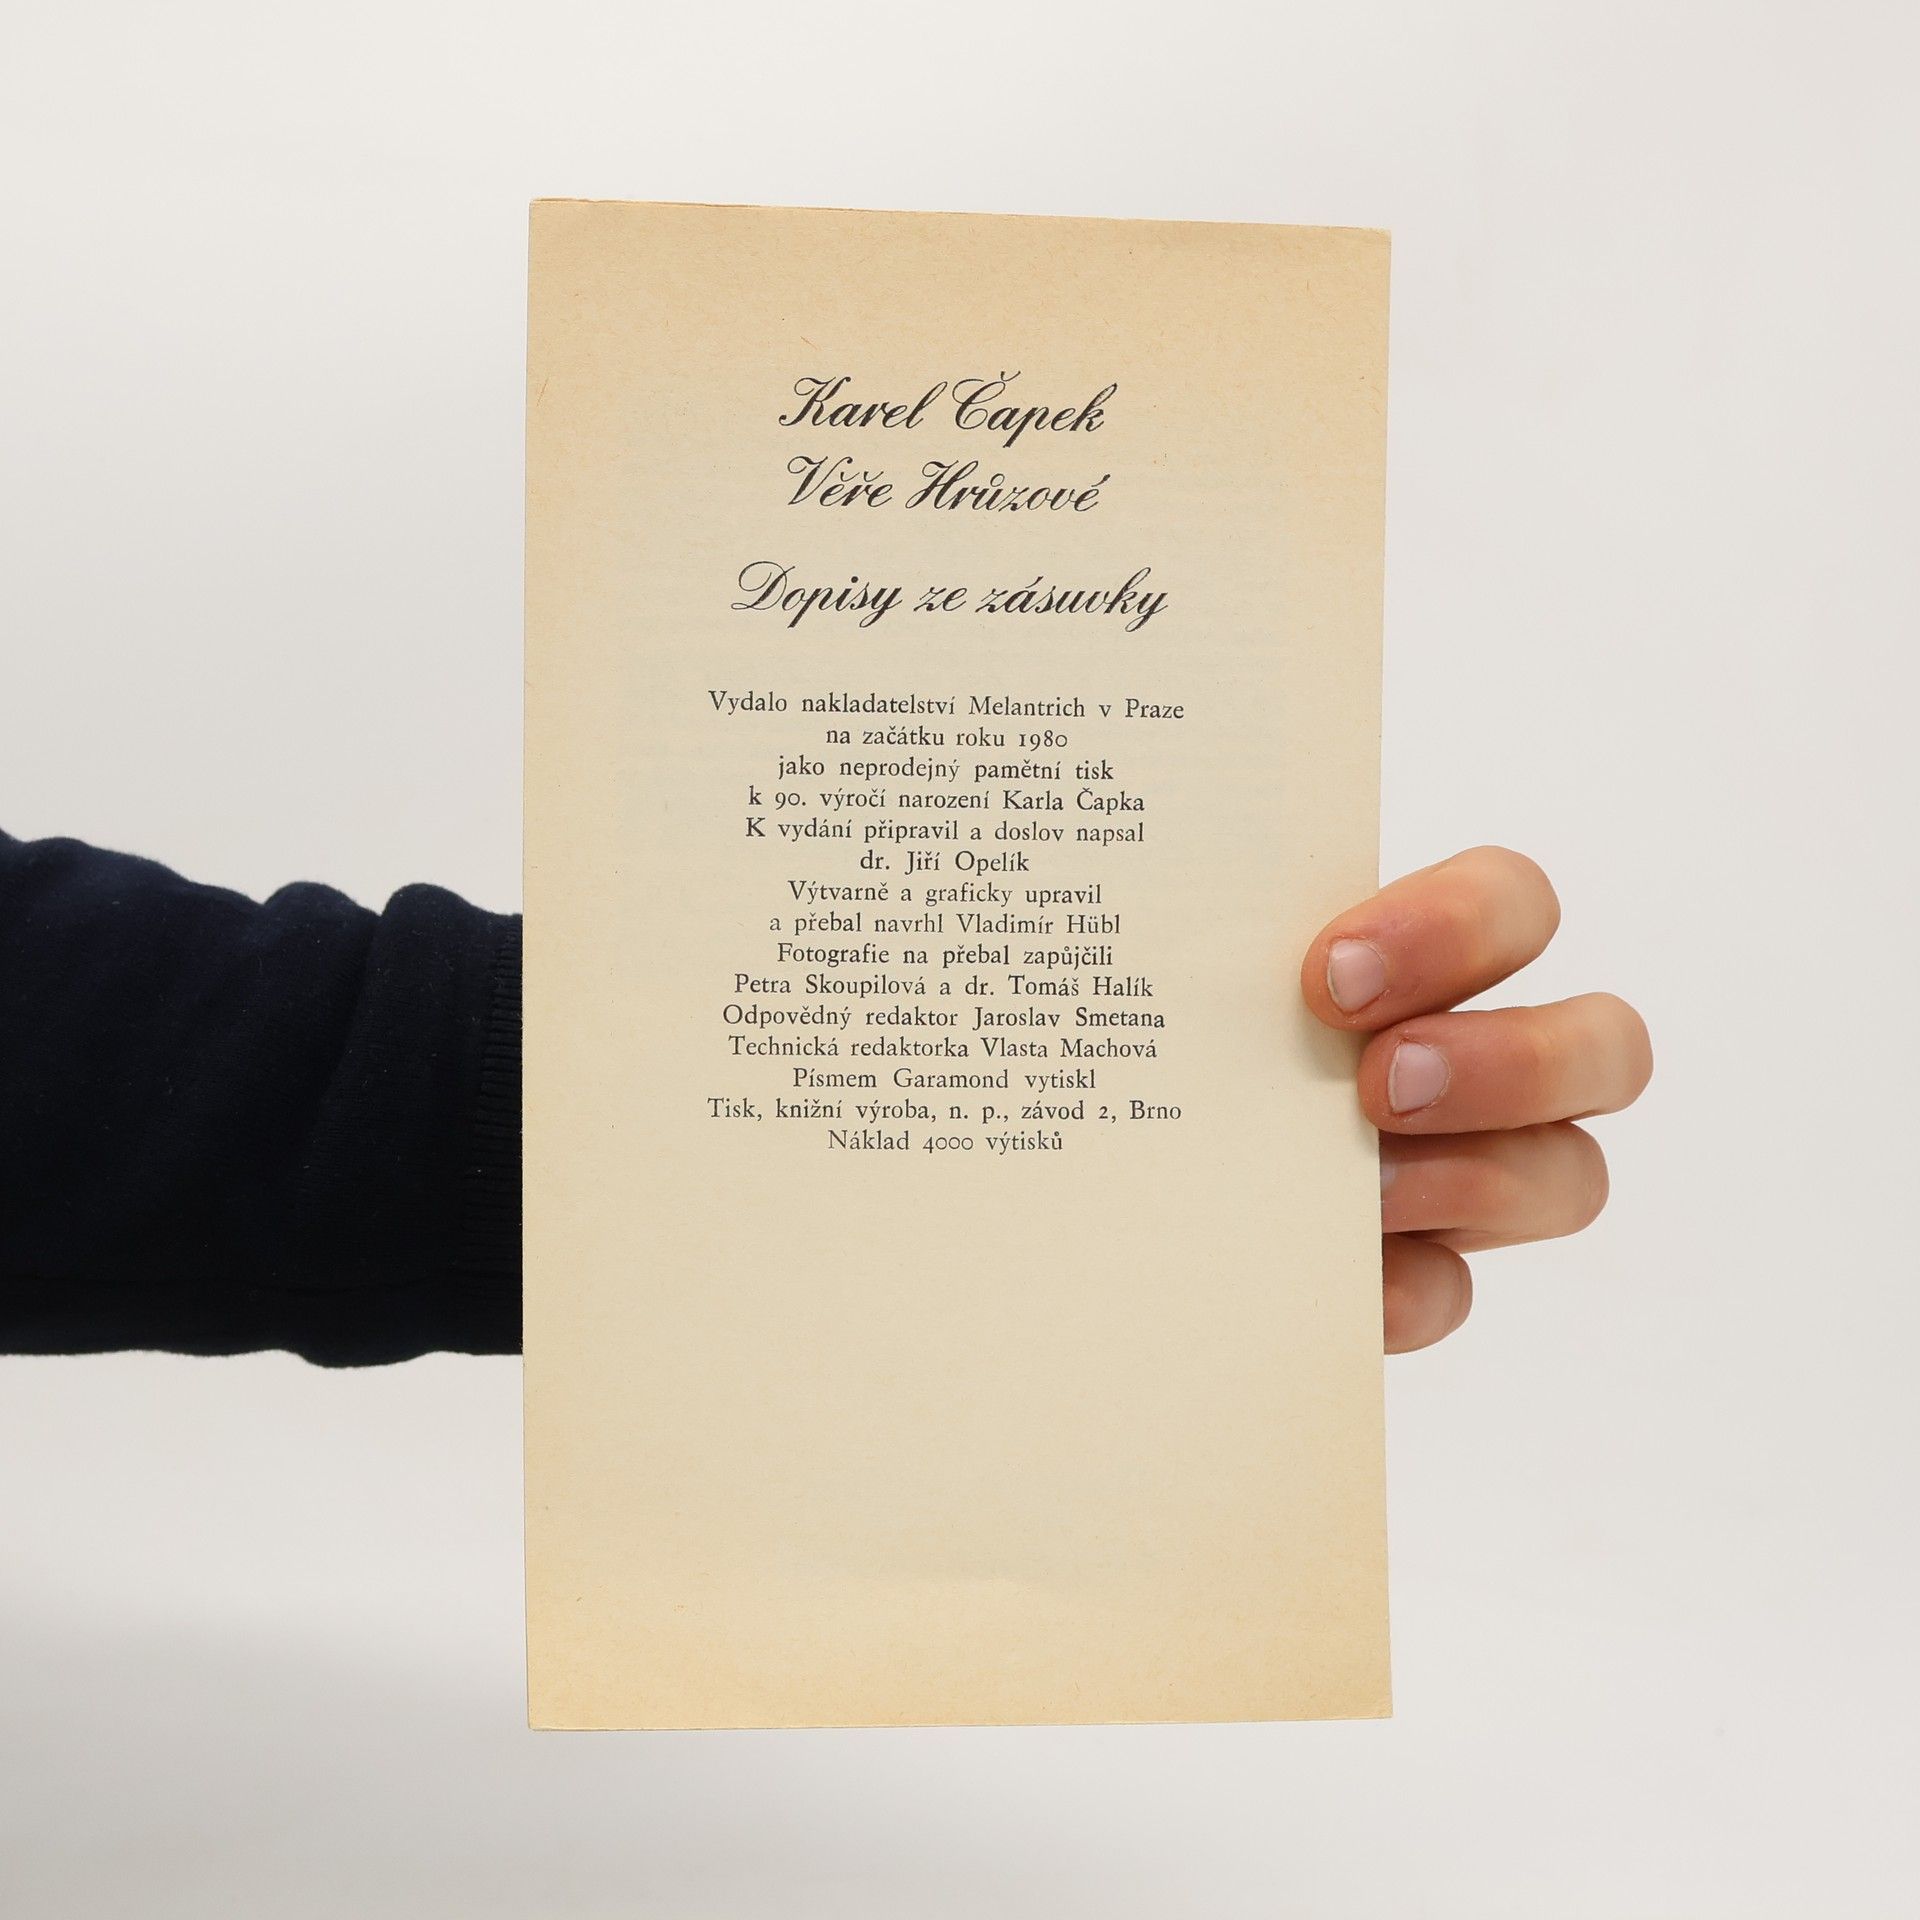 Karel Čapek
Věře Hrůzové
Dopisy ze zásuvky
Vydalo nakladatelství Melantrich v Praze
na začátku roku 1980
jako neprodejný pamětní tisk
k 90. výročí narození Karla Čapka
K vydání připravil a doslov napsal
dr. Jiří Opelík
Výtvarně a graficky upravil
a přebal navrhl Vladimír Hübl
Fotografie na přebal zapůjčili
Petra Skoupilová a dr. Tomáš Halík
Odpovědný redaktor Jaroslav Smetana
Technická redaktorka Vlasta Machová
Písmem Garamond vytiskl
Tisk, knižní výroba, n. p., závod 2, Brno
Náklad 4000 výtisků